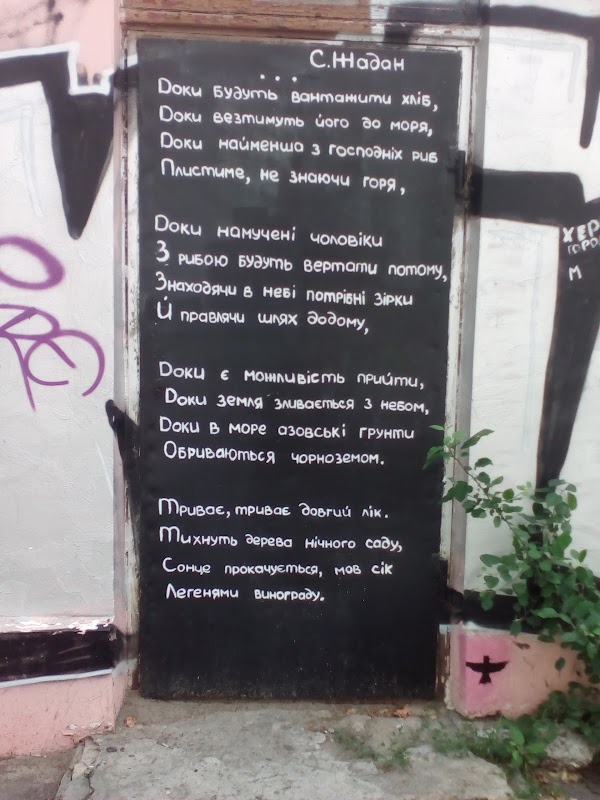 С.Жадан
...
Доки будуть вантажити хліб,
Доки везтимуть його до моря,
Доки найменша з господніх риб
Плистиме, не знаючи горя,
Доки намучені чоловіки
З рибою будуть вертати потому,
Знаходячи в небі потрібні зірки
Й правлячи шлях додому,
Доки є можливість прийти,
Доки земля зливається з небом,
Доки в море азовські ґрунти
Обриваються чорноземом.
Триває, триває довгий лік.
Тихнуть дерева нічного саду,
Сонце прокачується, мов сік
Легенями винограду.
ХЕР
ГОРО
М